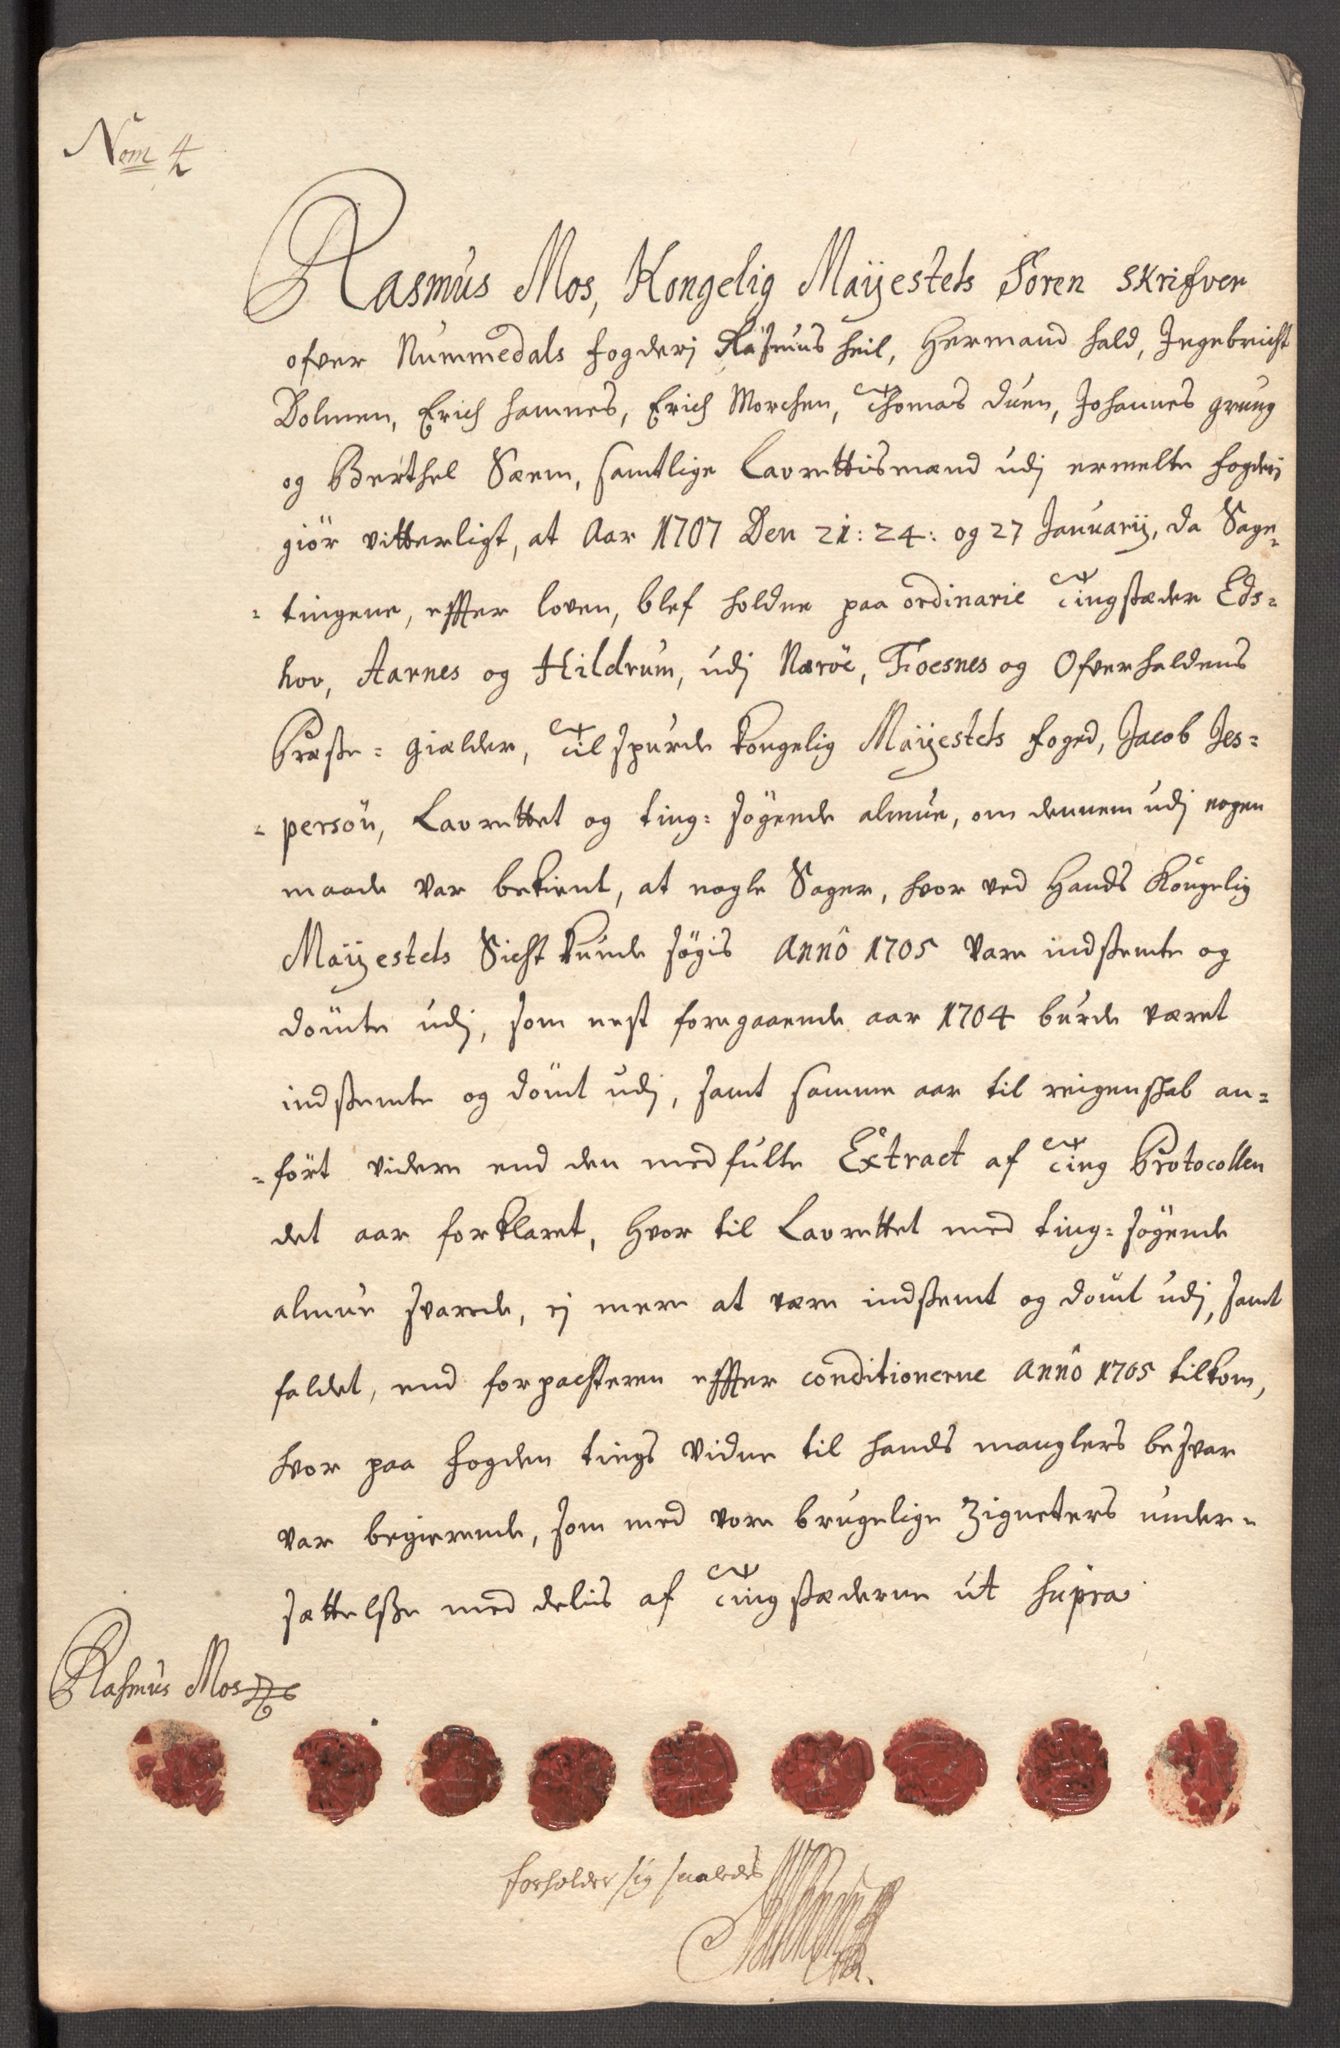 Nom 4
Rasmus Mos, Kongelig Maÿestets Soren skrifver
ofver Nummedals fogderj Rasmus heil, Hermand hald, Ingebricht
Dolmen, Erich hamnes, Erich Morchen, Thomas duen, Johannes grung
og Berthel Særm, samtlige Laurettismænd udj ermelte fogderj
giör vitterligt, at Aar 1707 Den 21: 24: og 27 Januarÿ, da Sage-
-tingene, effter loven, blef holdne paa ordinarie Tingstæder Eds-
hov, Aarnes og Hildrum, udj Næröe, Foesnes og Ofverhaldens
Præste-gialder, Tilspurde kongelig Maÿestets foged, Jacob Jes-
-persön, Laurettet og ting-søgende almue, om dennem udj nogen
maade var bekient, at nogle Sager, hvor ved Hands Kongelig
Maÿestets Sicht kunde søgis Anno 1705 vare indstemte og
dömte udj, som nest foregaaende aar 1704 burde været
indstemte og dömt udj, samt samme aar til reigenskab an-
-fört videre end den medfulte Extract af Ting Protocollen
det aar forklaret, Hvor til Laurettet med ting-søgende
almue svarede, ej mere at være indstemt og dömt udj, samt
faldet, end forpachteren effter conditionerne Anno 1705 tilkom,
hvor paa fogden tings vidne til hands manglers besvar
var begierende, som med vore brugelige Zigneters under-
sættelße med delis af Tingstæderne ut supra
Rasmus Mos
forholder sig saaledes